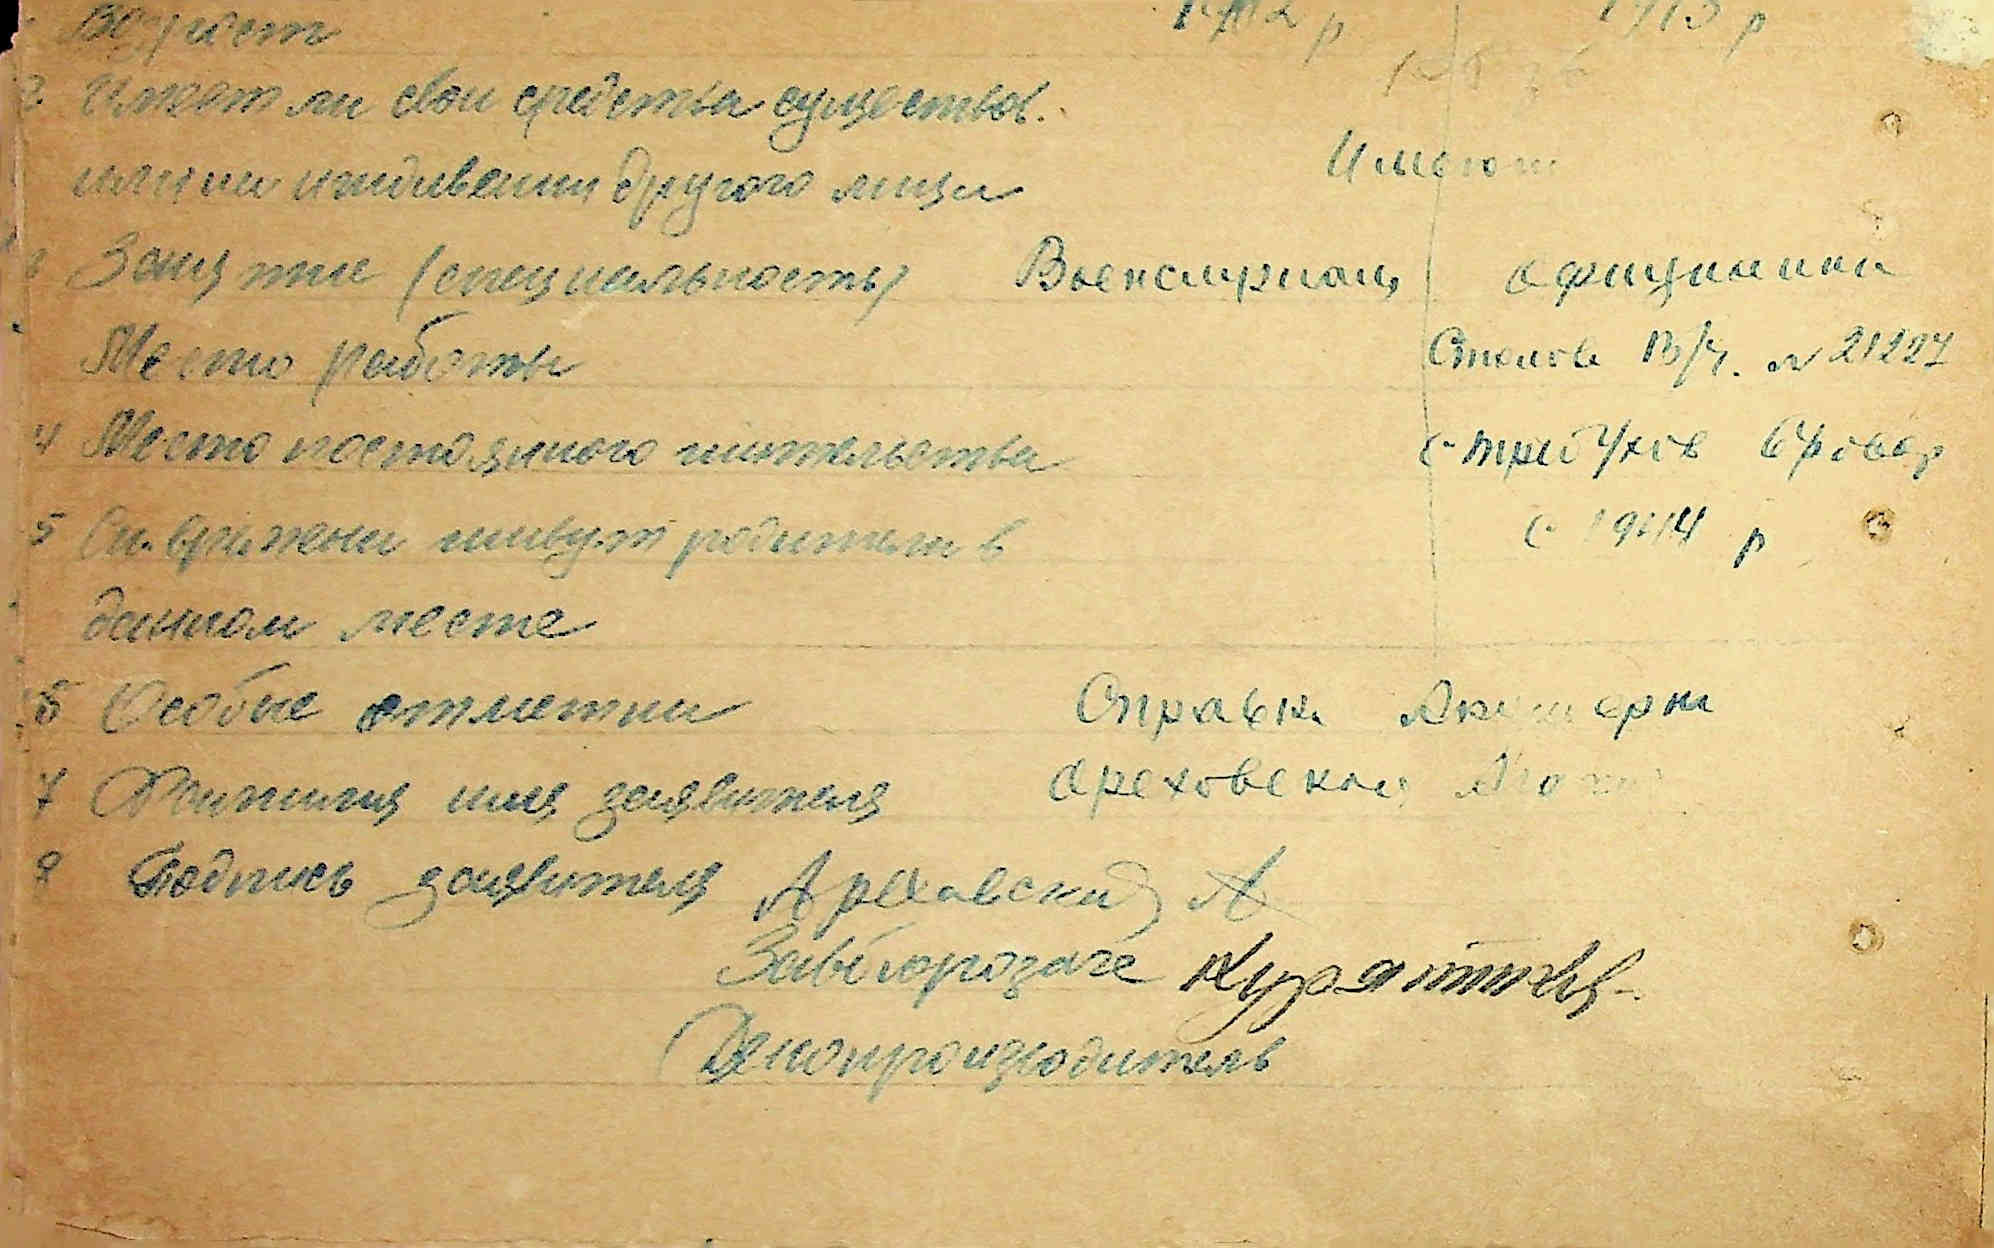 Возраст 1912 р 1913 р
2 Имеют ли свои средства существов.
или на иждивении другого лица Имеют
3 Занятие (специальность) Военслужащ официантка
Место работы Столов В/ч. № 21227
4 Место постоянного жительства
5 Ск. времени живут родители в с 1944 р
данном месте
5 Особые отметки Справка Акушерки
7 Фамилия имя заявителя Ореховский
8 Подпись заявителя Ореховский А
Завбюрозагс
Делопроизводитель